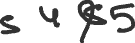 s 4 $5